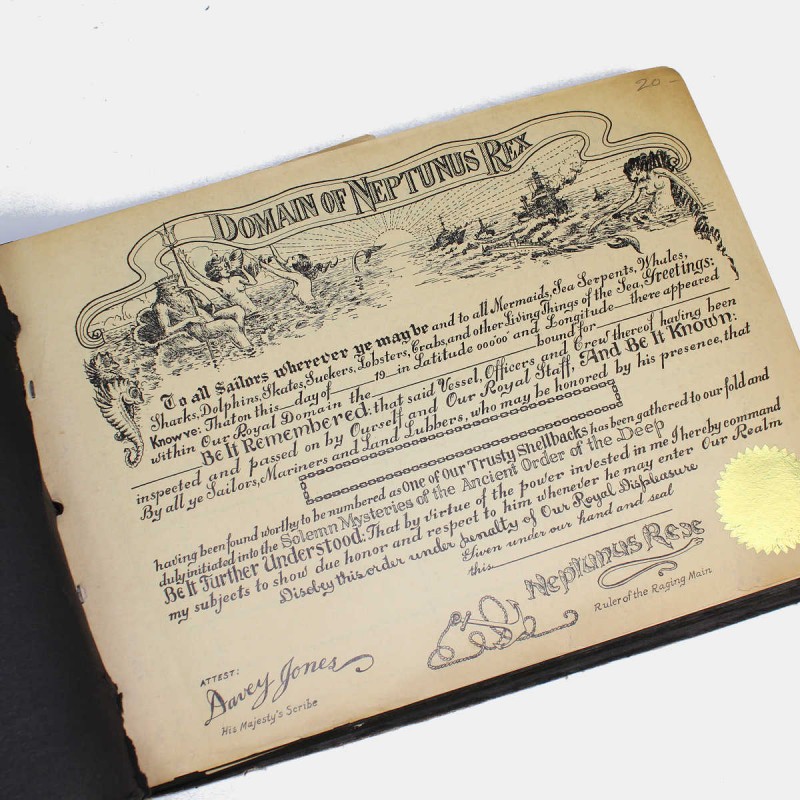 20-
DOMAIN OF NEPTUNUS REX
To all Sailors wherever ye may be and to all Mermaids, Sea Serpents, Whales,
Sharks, Dolphins, Skates, Suckers, Lobsters, Crabs, and other Living Things of the Sea, Greetings:
Know ye: That on this __ day of ____ 19__ in Latitude 00000 and Longitude ____ there appeared
within Our Royal Domain the ____ bound for ____
____ Be It Remembered: that said Vessel, Officers and Crew thereof having been
inspected and passed on by Ourself and Our Royal Staff, And Be It Known:
By all ye Sailors, Mariners and Land Lubbers, who may be honored by his presence, that
having been found worthy to be numbered as One of Our Trusty Shellbacks has been gathered to our fold and
duly initiated into the Solemn Mysteries of the Ancient Order of the Deep
Be It Further Understood: That by virtue of the power invested in me I hereby command
my subjects to show due honor and respect to him whenever he may enter Our Realm
Disobey this order under penalty of Our Royal Displeasure
Given under our hand and seal
this ____
Neptunus Rex
Ruler of the Raging Main
ATTEST:
Davey Jones
His Majesty's Scribe